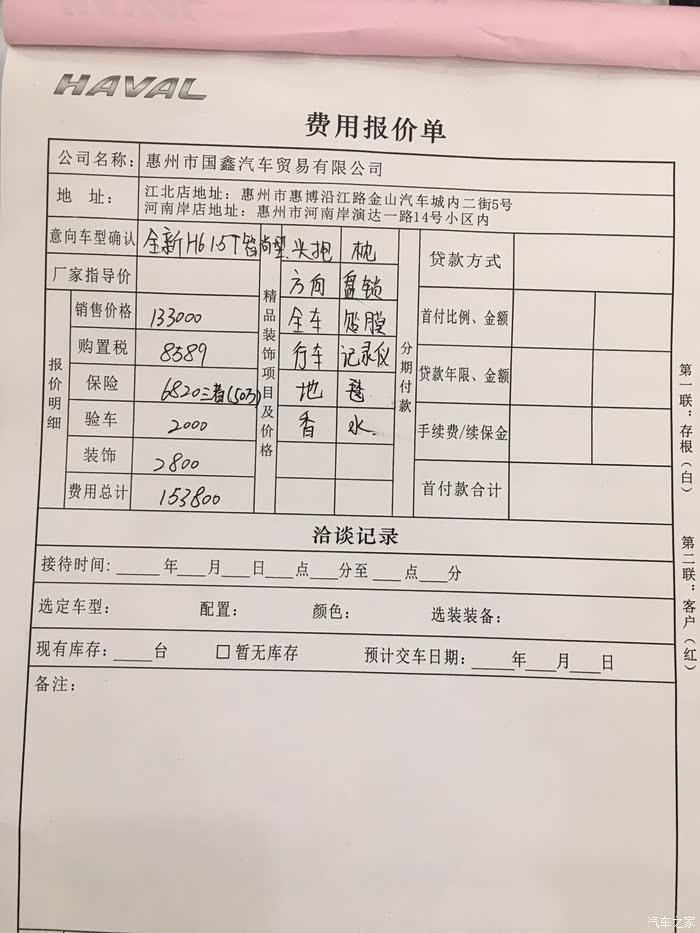 HAVAL
费用报价单
公司名称: 惠州市国鑫汽车贸易有限公司
地 址: 江北店地址: 惠州市惠博沿江路金山汽车城内二街5号
河南岸店地址: 惠州市河南岸演达一路14号小区内
意向车型确认 全新H6 1.5T智尚型 头抱 枕 贷款方式
厂家指导价 方向 盘锁
销售价格 133000 全车 贴膜 首付比例、金额
购置税 8589 行车 记录仪
保险 6820三者(50万) 地 毯 贷款年限、金额
验车 2000 香 水 手续费/续保金
装饰 2800
费用总计 153800 首付款合计
报价明细
精品装饰项目及价格
分期付款
洽谈记录
接待时间: 年 月 日 点 分至 点 分
选定车型: 配置: 颜色: 选装装备:
现有库存: 台 □暂无库存 预计交车日期: 年 月 日
备注:
第一联: 存根(白)
第二联: 客户(红)
汽车之家